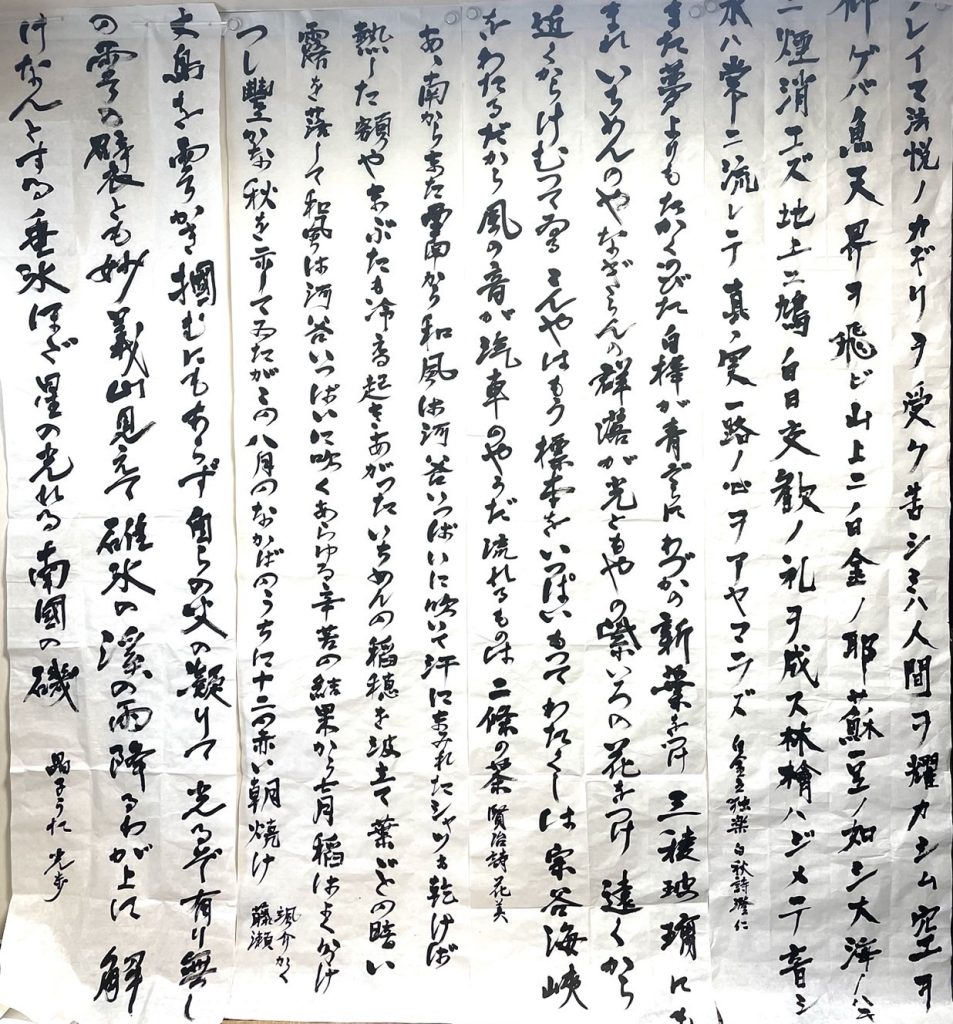 レイマ法悦ノカギリヲ受ク苦シミハ人間ヲ耀カシム空ヲ
仰ゲバ魚天界ヲ飛ビ山上ニ白金ノ耶蘇豆ノ如シ大洋ノハテ
ニ煙消エズ地上ニ鳩白日交歓ノ礼ヲ成ス林檎ハジメテ音シ
水ハ常ニ流レテ真ノ実一路ノ心ヲアヤマラズ 白金之独楽 白秋詩 澄仁
また夢よりもたかくのびた白樺が青ぞらにわづかの新葉をつけ三稜玻璃にも
まれいちめんのやなぎらんの群落が光ともやの紫いろの花をつけ遠くから
近くからけむつてゐるこんやはもう標本をいつぱいもつてわたくしは宗谷海峡
をわたるだから風の音が汽車のやうだ流れるものは二條の茶 賢治詩 花美
あゝ南からまた西南から和風は河谷いつぱいに吹いて汗にまみれたシャツも乾けば
熱した額やまぶたも冷える起きあがつたいちめんの稲穂を波立て葉ごとの暗い
露を落して和風は河谷いつぱいに吹くあらゆる辛苦の結果から七月稲はよく分け
つし豊かな秋を示してゐたがこの八月のなかばのうちに十二の赤い朝焼け
颯介かく
藤瀬
を雲かき掴むにもあらず自らの火の凝りて光るぞ有り無し
の雲の襞とも妙義山見えて碓氷の渓の雨降るわが上に 解
けなんとする垂氷ほど星の光れる南國の磯 晶子うた 光歩